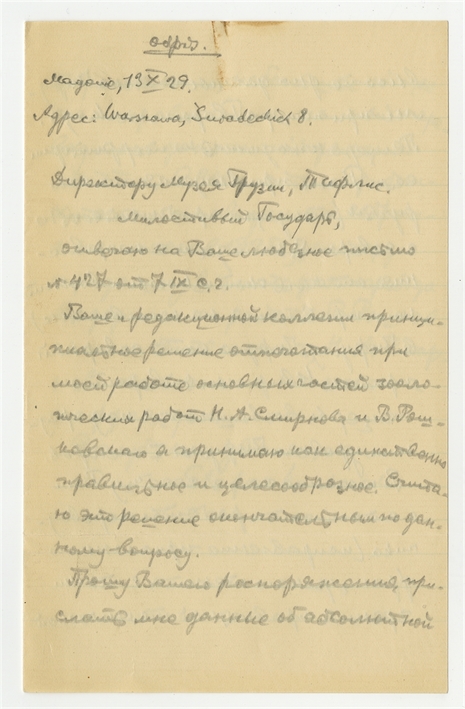 Мадоне, 13 X 29.
Адрес: Warszawa, 8.
Директору Музея Грузии, Тифлис.
Милостивый Государь,
отвечаю на Ваше любезное письмо
№ 427 от 7 IX с.г.
Ваше и редакционной коллегии принци-
пиальное решение отпечатания при
моей работе основных частей зооло-
гических работ Н. А. Смирнова и В. Рош-
ковского я принимаю как единственно
правильное и целесообразное. Счита-
ю это решение окончательным по дан-
ному вопросу.
Прошу Вашего распоряжения, при-
слать мне данные об абсолютной